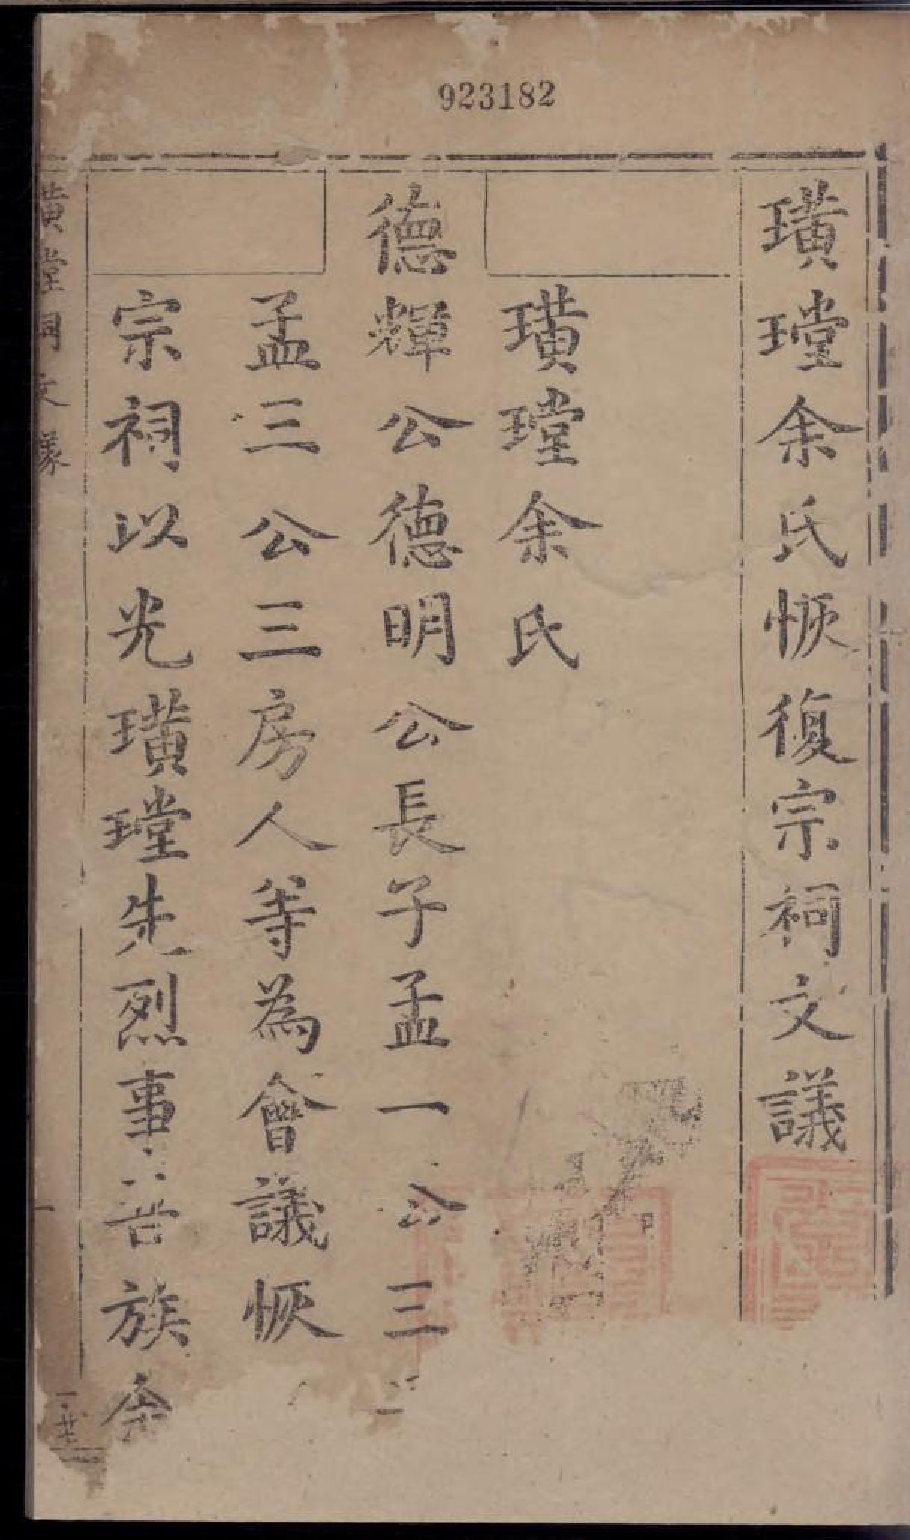 923182
璜瑝余氏恢復宗祠文議
璜瑝余氏
德輝公德明公長子孟一公三
孟三公三房人等為會議恢
宗祠以光璜瑝先烈事昔族余
祠文